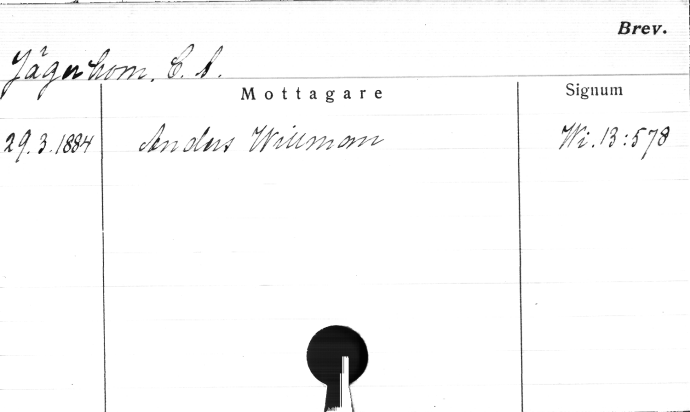 Brev.
Jägerhorn, C. C.
Mottagare Signum
29.3.1884 Anders Willman Wi.13:578